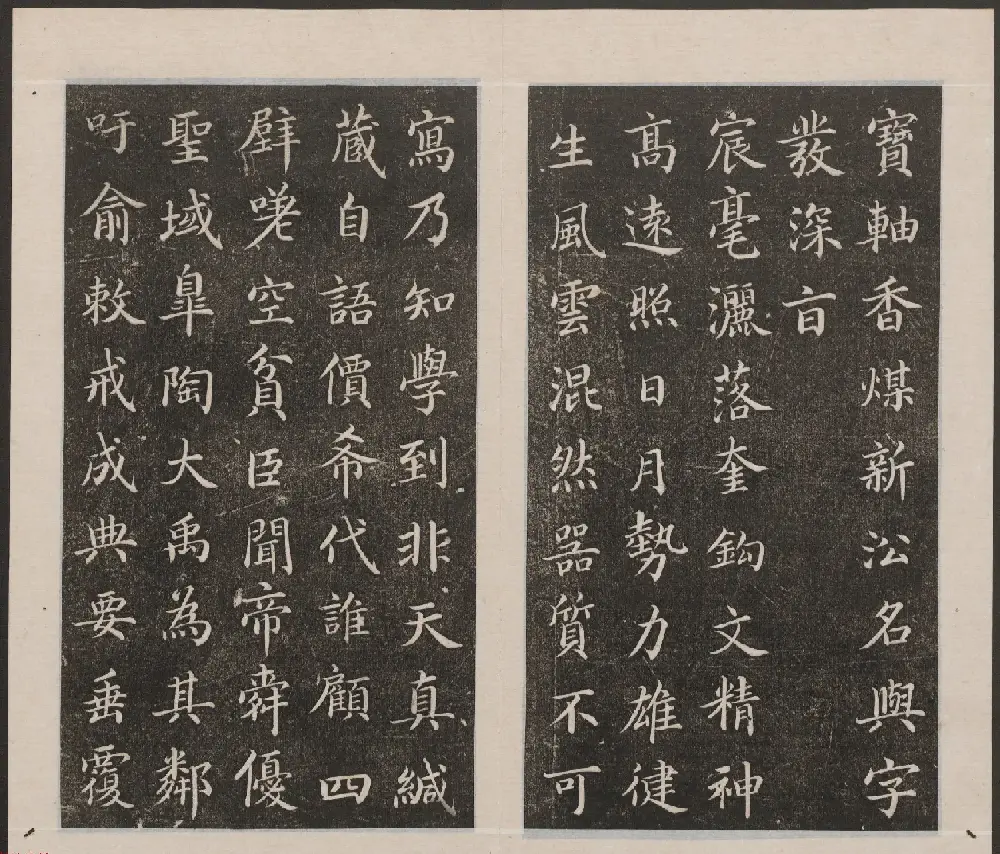 寶軸香煤新㳂名與字
發深㫖
宸毫灑落奎鈎文精神
髙遠照日月勢力雄健
生風雲混然器質不可
寫乃知學到非天真緘
蔵自語價希代誰顧四
壁嗟空貧臣聞帝舜優
聖域臯陶大禹為其鄰
吁俞敕戒成典要垂覆